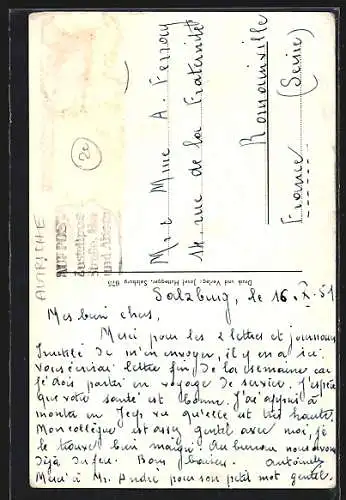 Mr & Mme A. Ferroy
14 rue de la Fraternité
Romainville
France (Seine)
20
AUTRICHE
Druck und Verlag: Josef Huttegger, Salzburg 675
Salzburg, le 16. X. 51
Mes bien chers,
Merci pour les 2 lettres et journaux
Inutile de m'en envoyer, il y en a ici.
Vous écrirai lettre fin de la semaine car
je dois partir en voyage de service. J'espère
que votre santé est bonne. J'ai appris à
monter en Jeep vu qu'elle est très haute.
Mon collègue est assez gentil avec moi, je
le trouve bien maigri. Au bureau nous avons
déjà du feu. Bons baisers. Antoinette
Merci à Mr. André pour son petit mot gentil.